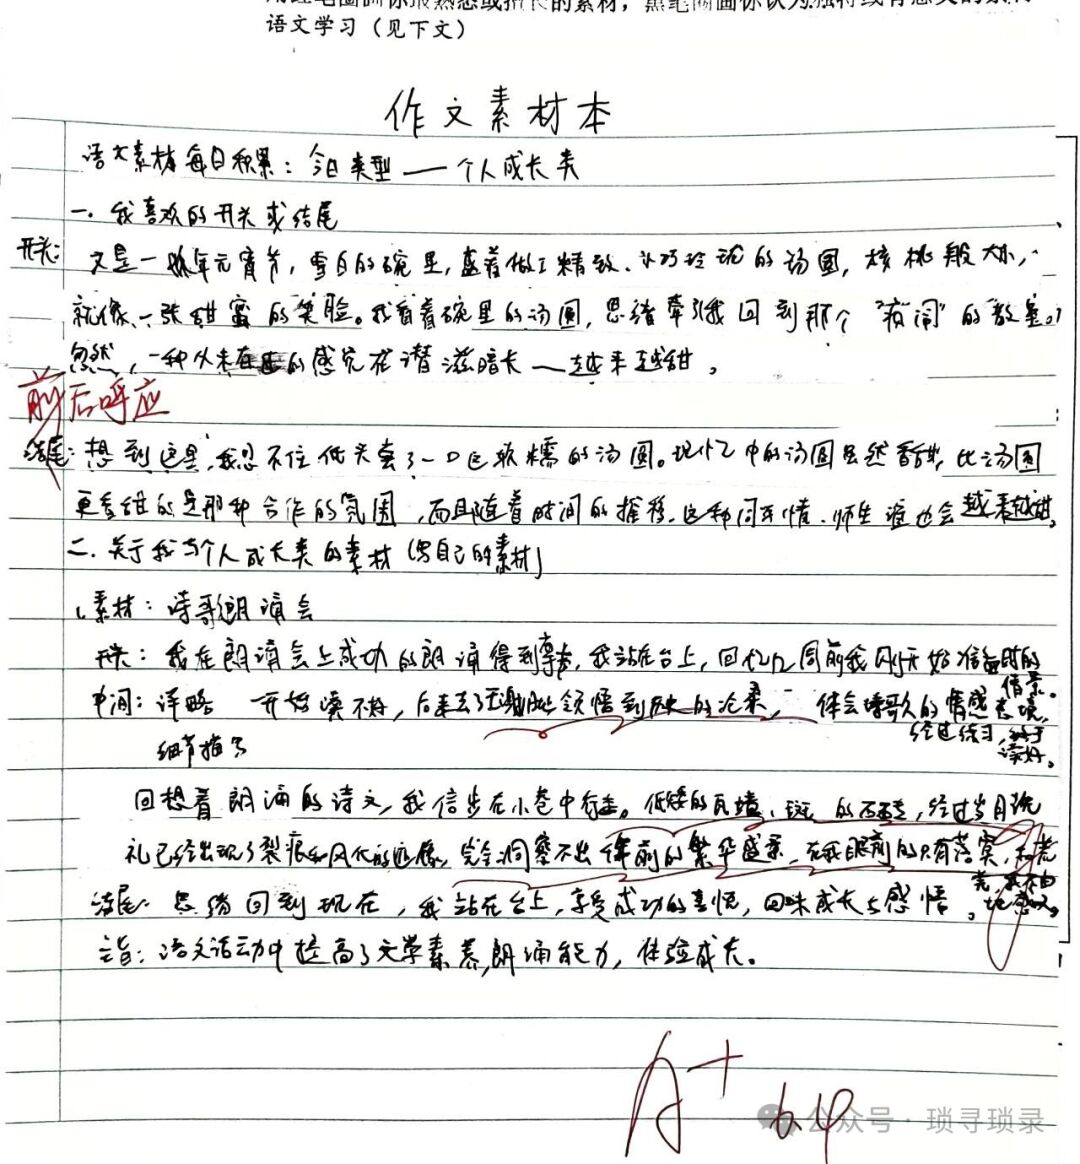 语文学习（见下文）
作文素材本
语文素材每日积累：今日类型——个人成长类
一、我喜欢的开头或结尾
开头：又是一年元宵节，雪白的碗里，盛着做工精致、小巧玲珑的汤圆，核桃般大小，
就像一张甜蜜的笑脸。我看着碗里的汤圆，思绪牵引我回到那个“夜闹”的教室。
忽然，一种从未有过的感觉在潜滋暗长——越来越甜。
前后呼应
结尾：想到这里，我忍不住低头尝了一口这软糯的汤圆。记忆中的汤圆虽然香甜，比汤圆
更香甜的是那种合作的氛围，而且随着时间的推移，这种同学情、师生谊也会越来越甜。
二、关于我与个人成长类的素材（写自己的素材）
1、素材：诗歌朗诵会
开头：我在朗诵会上成功的朗诵得到掌声，我站在台上，回忆几周前我刚开始准备时的
情景。
中间：详略 一开始读不好，后来去了 领悟到历史的沧桑，体会诗歌的情感意境，
经过练习，终于
读好。
细节描写
回想着朗诵的诗文，我信步在小巷中行走。低矮的瓦墙、斑 的石 ，经过岁月洗
礼已经出现了裂痕和风化的 ，完全洞察不出 年前的繁华盛景，在我眼前的只有落寞，
结尾：思绪回到现在，我站在台上，享受成功的喜悦，回味成长与感悟。
主旨：语文活动中提高了文学素养，朗诵能力，体验成长。
A+
公众号·琐寻琐录